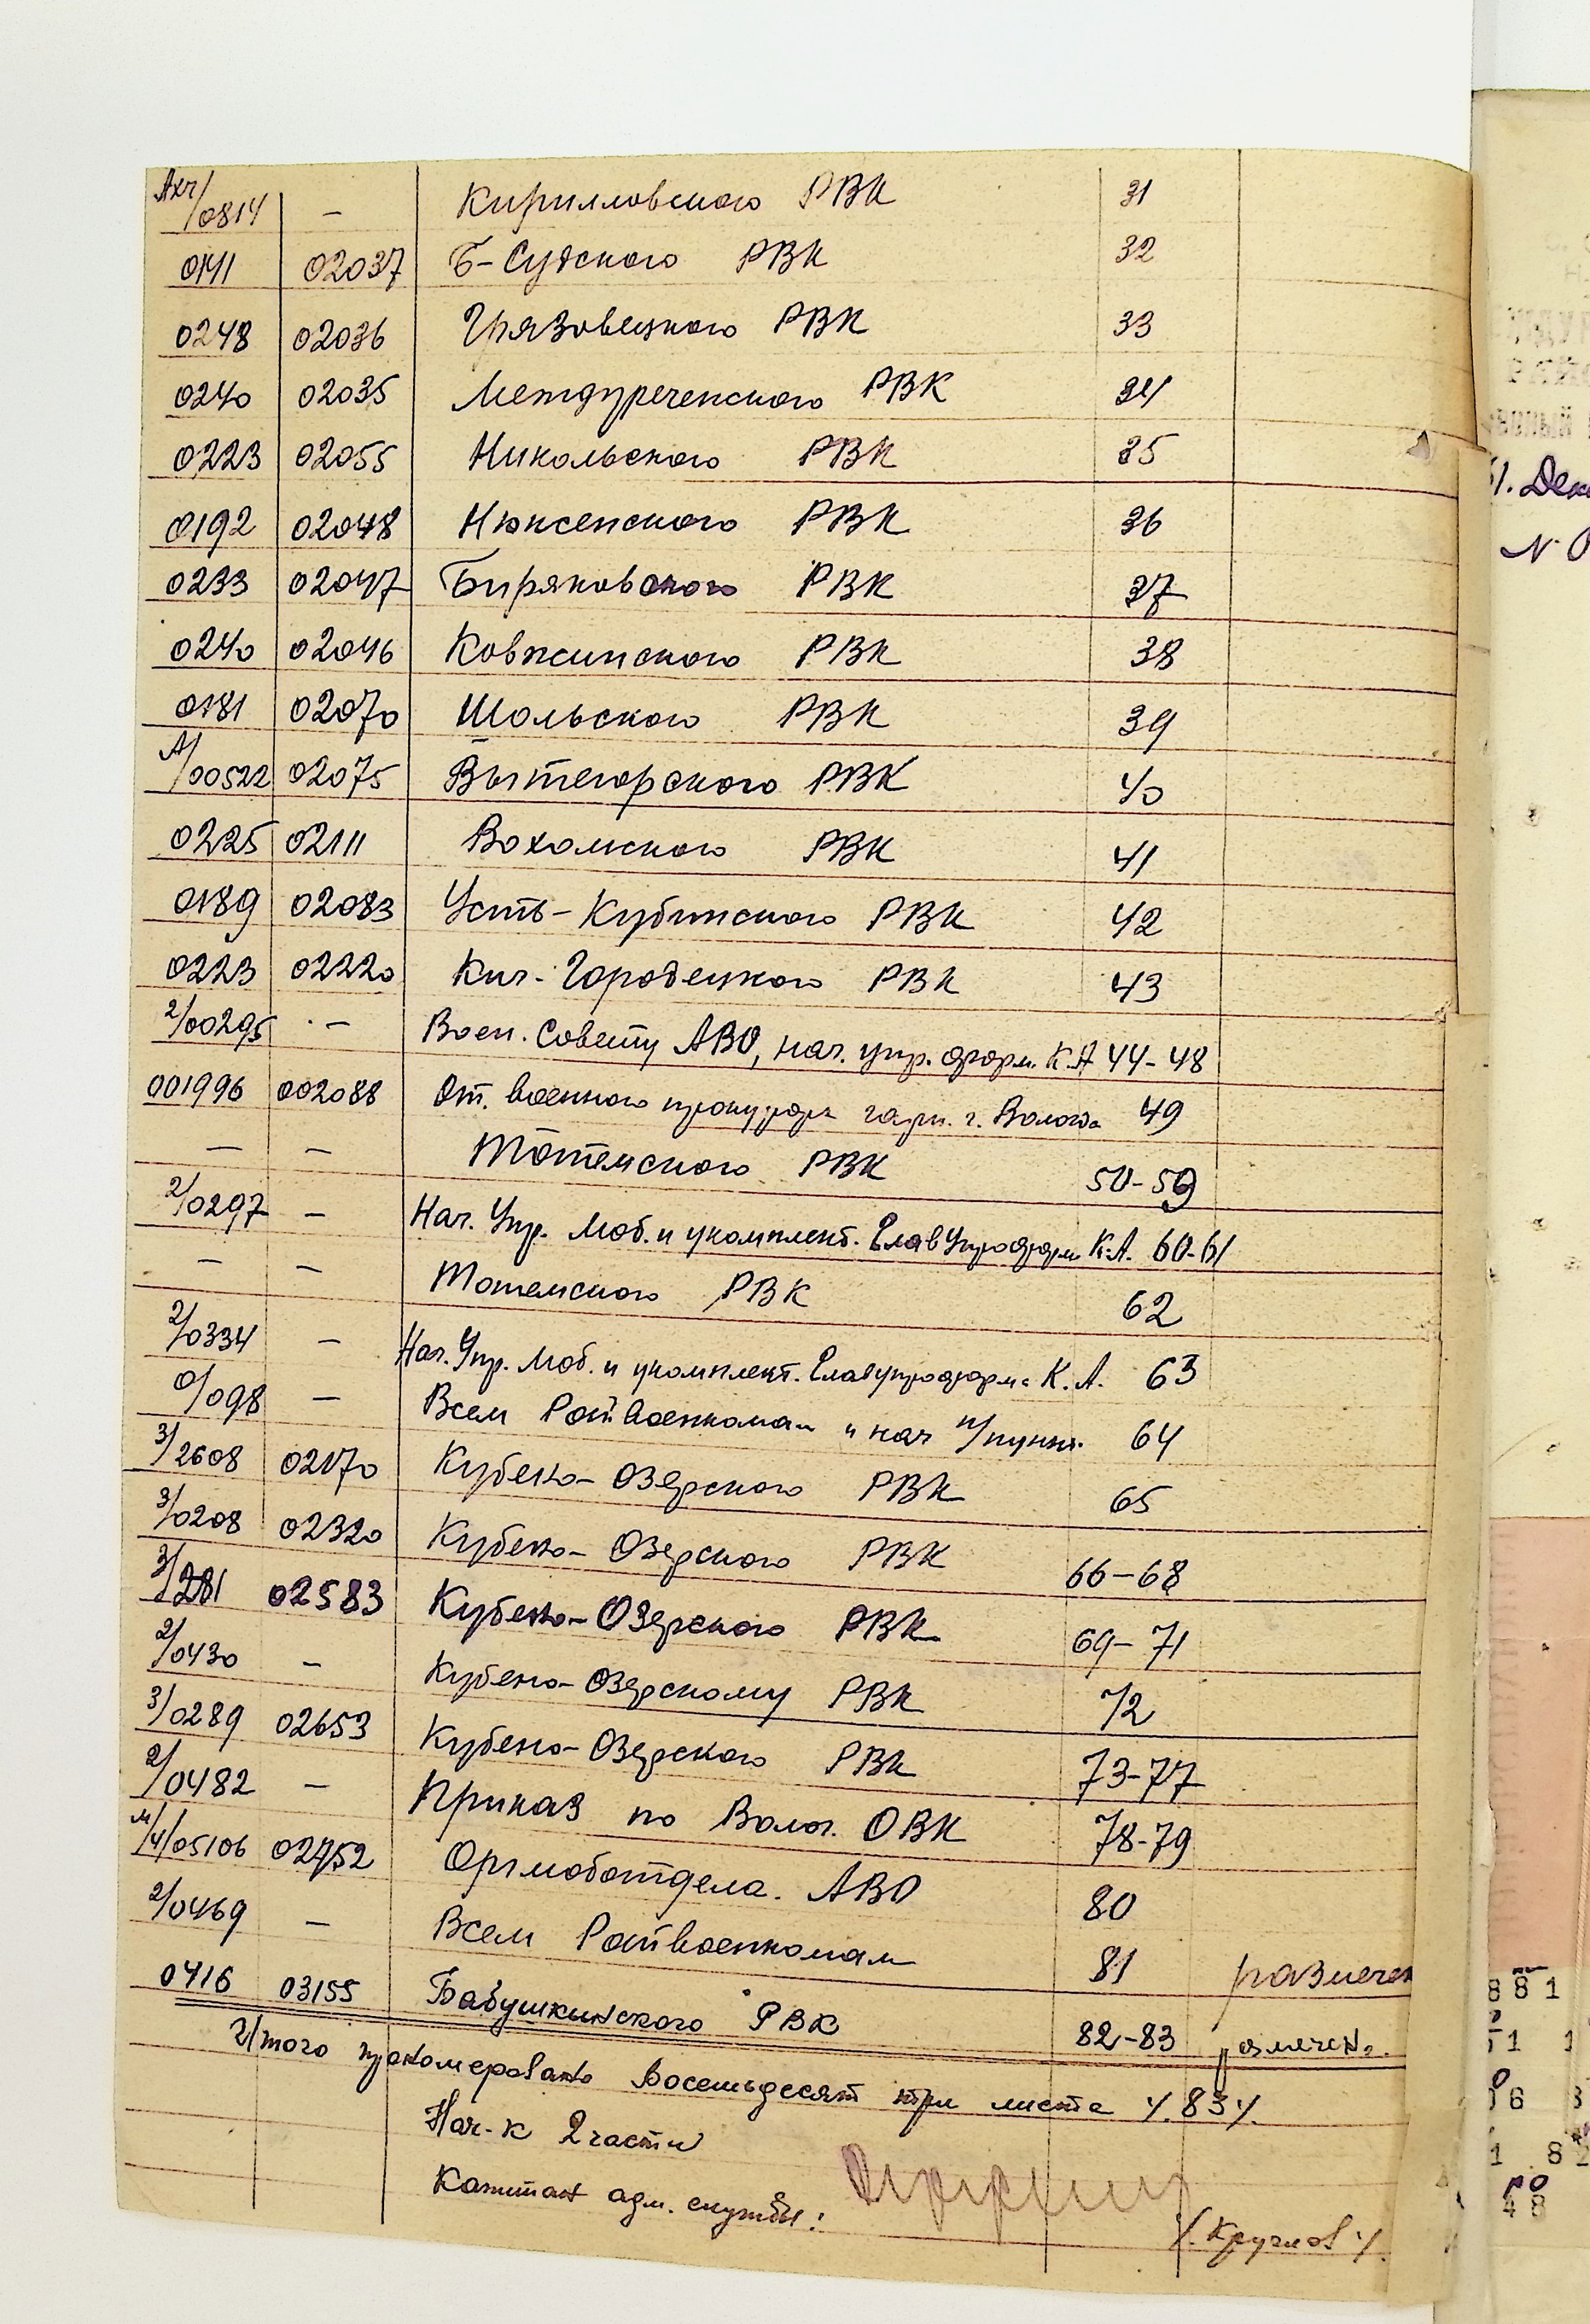 Ахч/0814 — Кирилловского РВК 31
0141 02037 Б-Судского РВК 32
0248 02036 Грязовецкого РВК 33
0240 02035 Междуреченского РВК 34
0223 02055 Никольского РВК 35
0192 02048 Нюксенского РВК 36
0233 02047 Биряковского РВК 37
0240 02046 Ковжинского РВК 38
0181 02070 Шольского РВК 39
А/00522 02075 Вытегорского РВК 40
0225 02111 Вохомского РВК 41
0189 02083 Усть-Кубинского РВК 42
0223 02220 Кич-Городецкого РВК 43
2/00295 — Воен. Совету АВО, нач. упр. форм. К.А 44-48
001996 002088 От. военного прокурора гарн. г. Вологда 49
— — Тотемского РВК 50-59
2/0297 — Нач. Упр. Моб. и укомплект. ГлавУпроформ К.А. 60-61
— — Тотемского РВК 62
2/0334 — Нач. Упр. Моб. и укомплект. Главупроформ. К.А. 63
0/098 — Всем Райвоенкомам и нач п/пункт. 64
3/2608 02170 Кубено-Озерского РВК 65
3/0208 02320 Кубено-Озерского РВК 66-68
3/281 02583 Кубено-Озерского РВК 69-71
2/0430 — Кубено-Озерскому РВК 72
3/0289 02653 Кубено-Озерского РВК 73-77
2/0482 — Приказ по Волог. ОВК 78-79
м/4/05106 02752 Оргмоботдела. АВО 80
2/0469 — Всем Райвоенкомам 81 размечен
0416 03155 Бабушкинского РВК 82-83 размечен.
Итого пронумеровано восемьдесят три листа /.83/.
Нач-к 2 части
Капитан адм. службы:
/.Круглов/.
51. Дек
N. 0
881
51 1
36 3
1 82
48